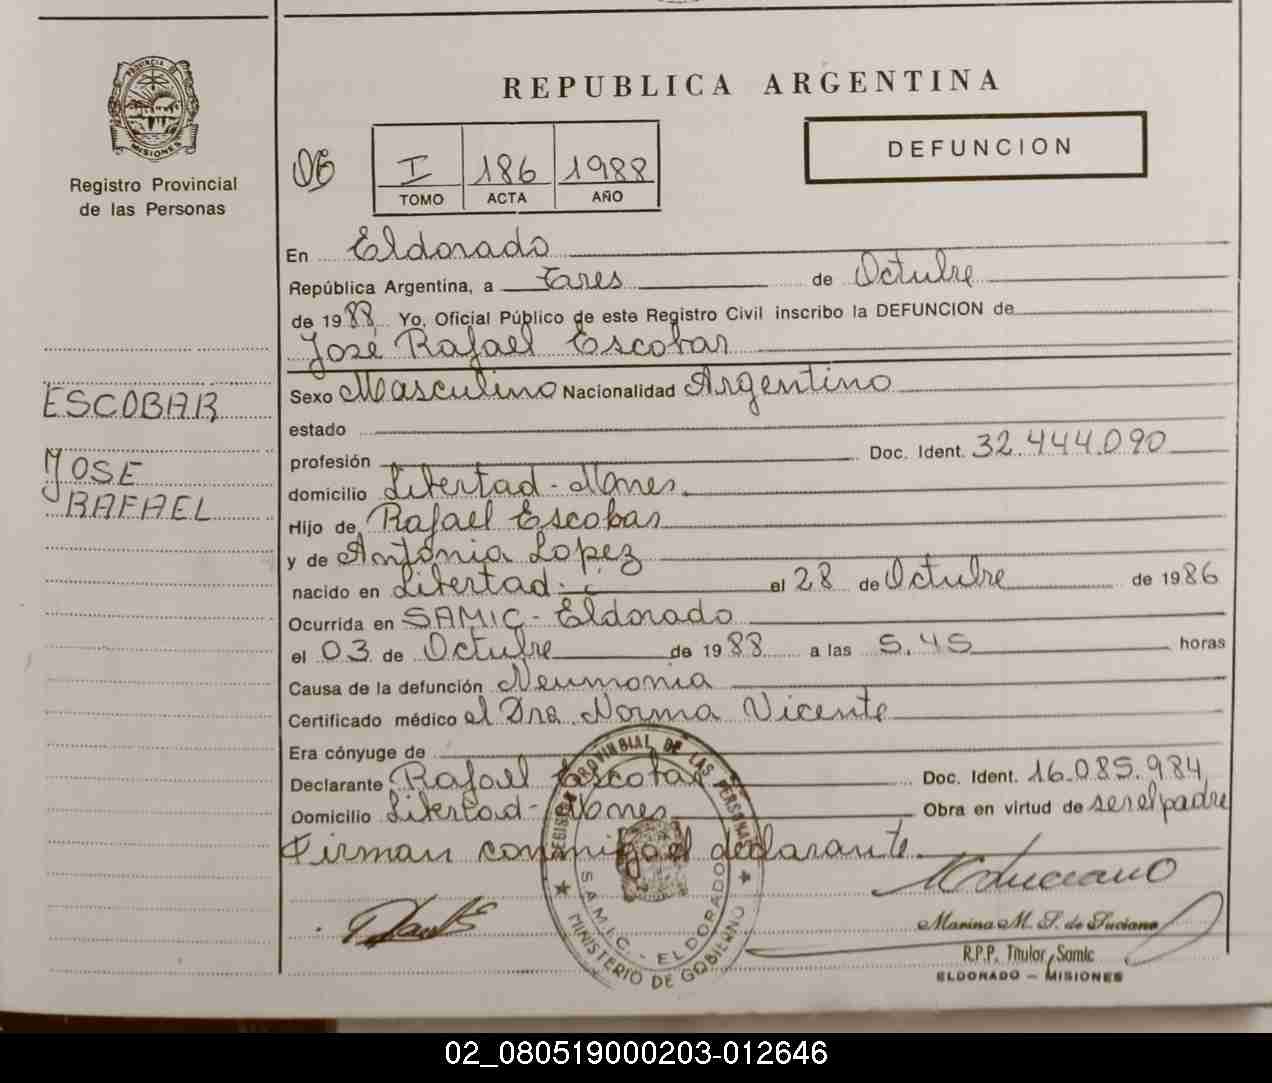 PROVINCIA DE
MISIONES
Registro Provincial
de las Personas
ESCOBAR
JOSE
RAFAEL
REPUBLICA ARGENTINA
I 186 1988
TOMO ACTA AÑO
DEFUNCION
En Eldorado
República Argentina, a Tres de Octubre
de 1988 Yo, Oficial Público de este Registro Civil inscribo la DEFUNCION de
José Rafael Escobar
Sexo Masculino Nacionalidad Argentino
estado
profesión Doc. Ident. 32.444.090
domicilio Libertad - Mnes.
Hijo de Rafael Escobar
y de Antonia Lopez
nacido en Libertad - el 28 de Octubre de 1986
Ocurrida en SAMIC - Eldorado
el 03 de Octubre de 1988 a las 5.45 horas
Causa de la defunción Neumonia
Certificado médico el Dra. Norma Vicente
Era cónyuge de
Declarante Rafael Escobar Doc. Ident. 16.085.984
Domicilio Libertad - Mnes Obra en virtud de ser el padre
Firman conmigo el declarante
REGISTRO PROVINCIAL DE LAS PERSONAS
S.A.M.I.C. - ELDORADO
MINISTERIO DE GOBIERNO
Marina M. F. de Luciano
R.P.P. Titular Samic
ELDORADO - MISIONES
02_080519000203-012646